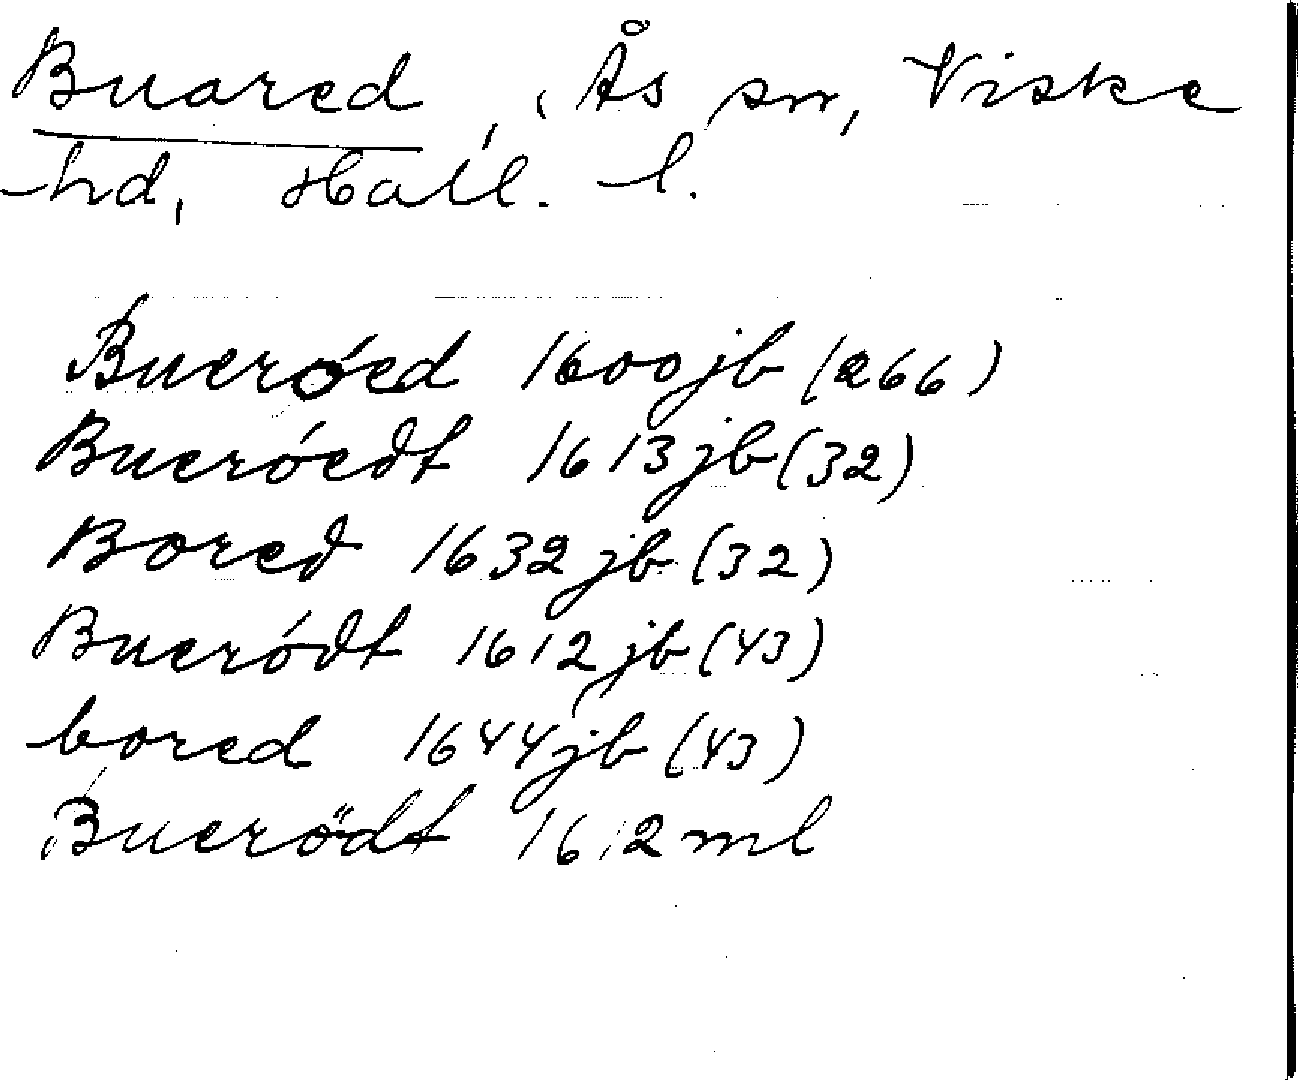 Buared, Ås sn, Viske
hd, Hall. l.
Bueróed 1600 jb (266)
Bueróedt 1613 jb (32)
Bored 1632 jb (32)
Bueródt 1612 jb (43)
bored 1644 jb (43)
Buerödt 1612 ml